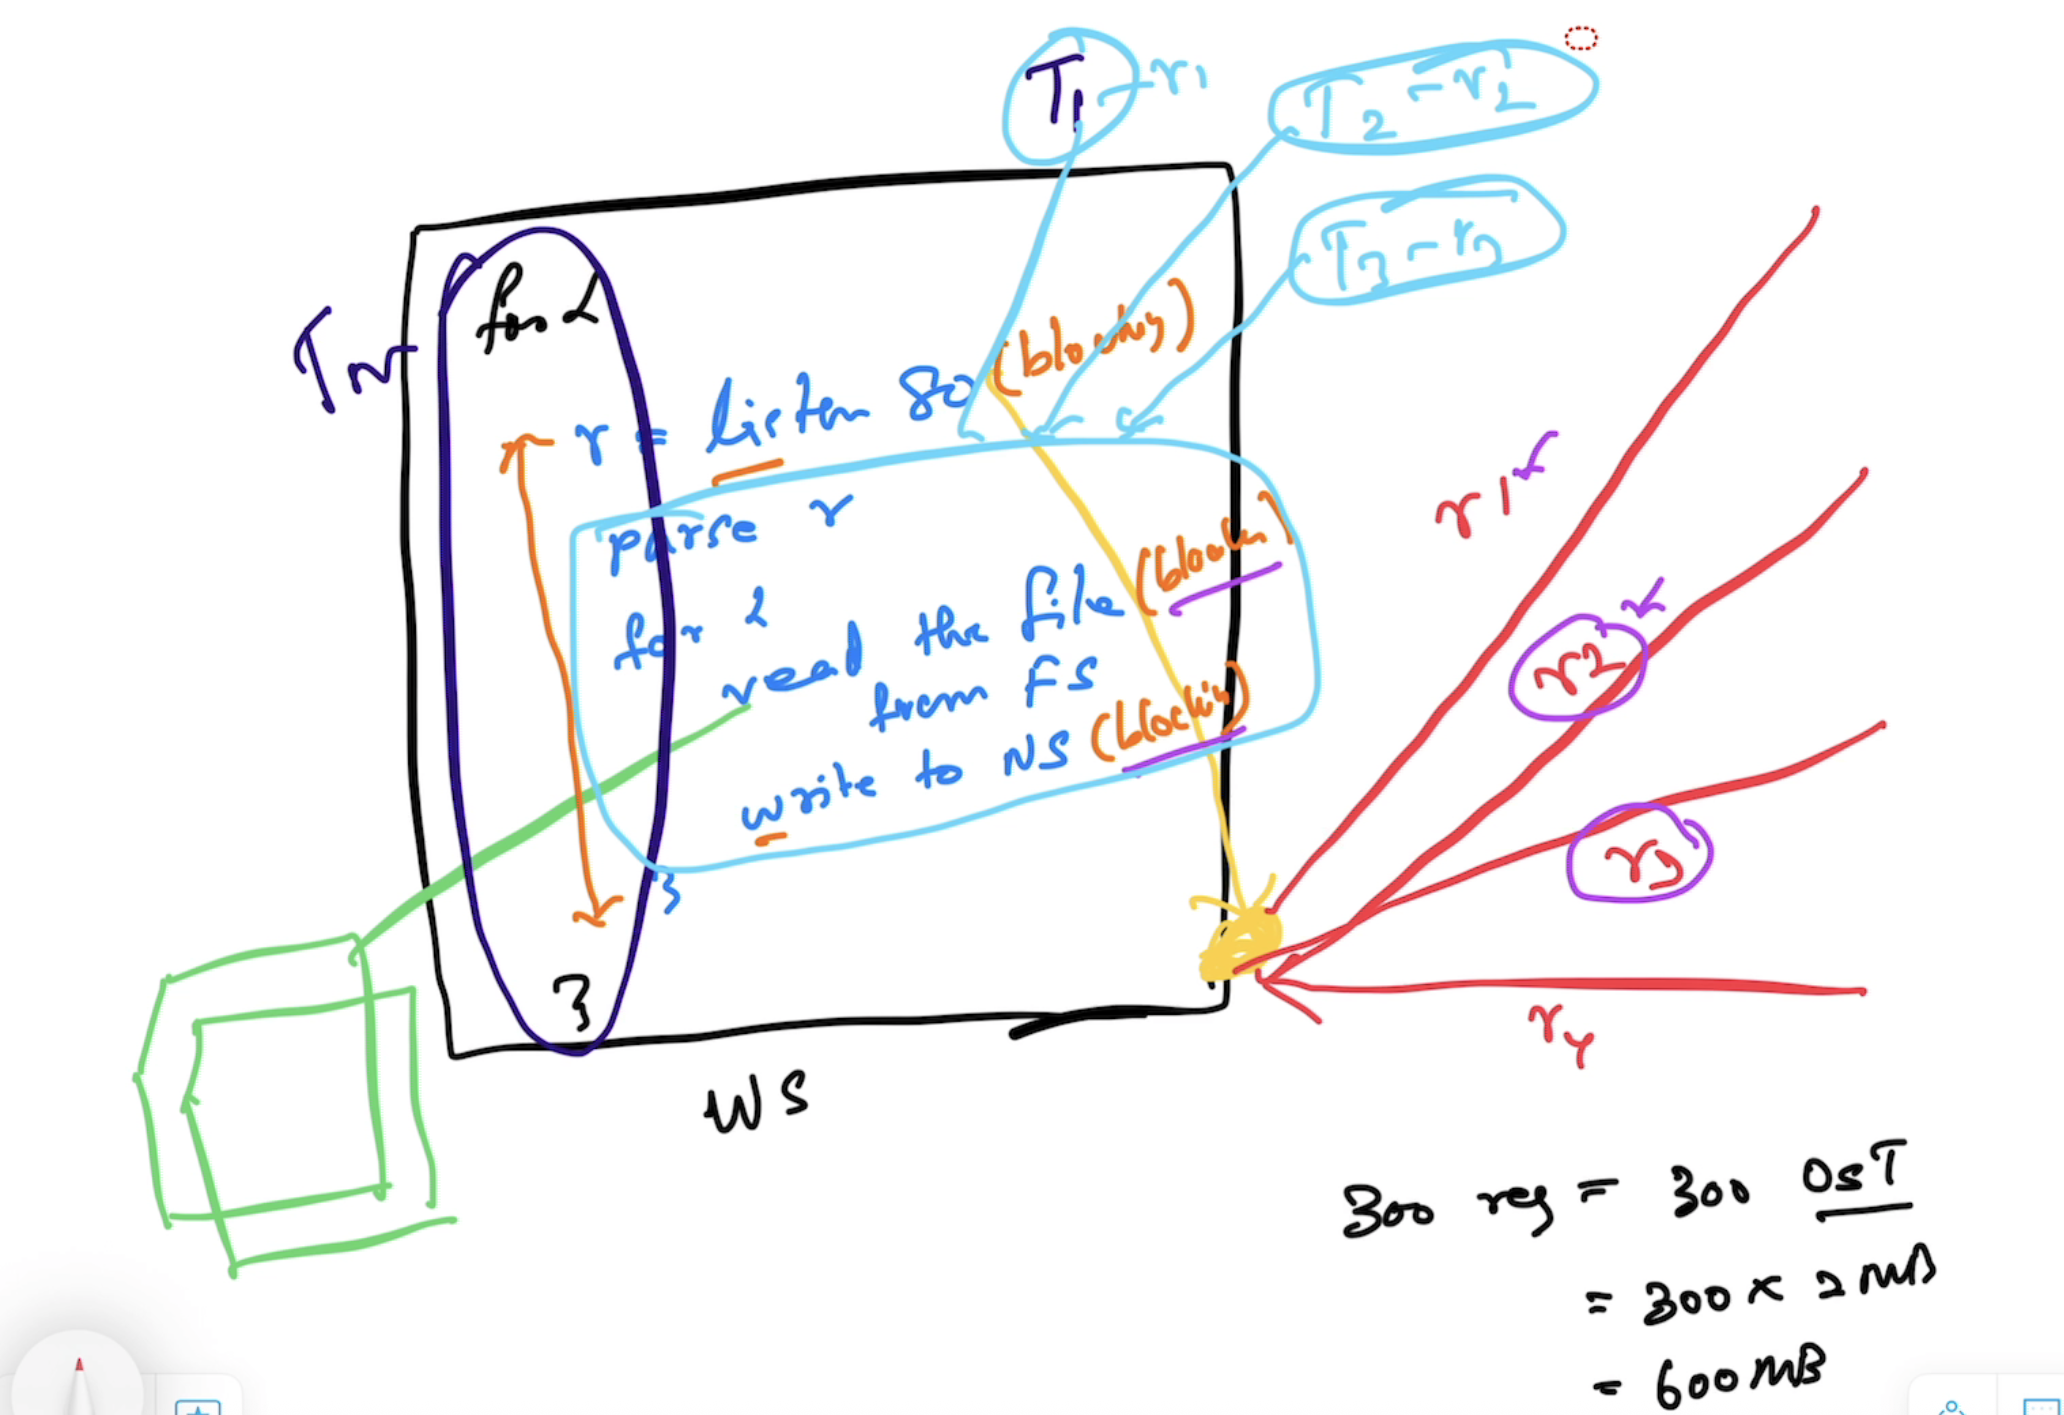 T1 - r1
T2 - r2
T3 - r3
TM
for {
r = listen 80 (blocking)
parse r
for {
read the file (blocking)
from FS
write to NS (blocking)
}
}
WS
r1
r2
r3
r4
300 req = 300 OST
= 300 x 2 MB
= 600 MB